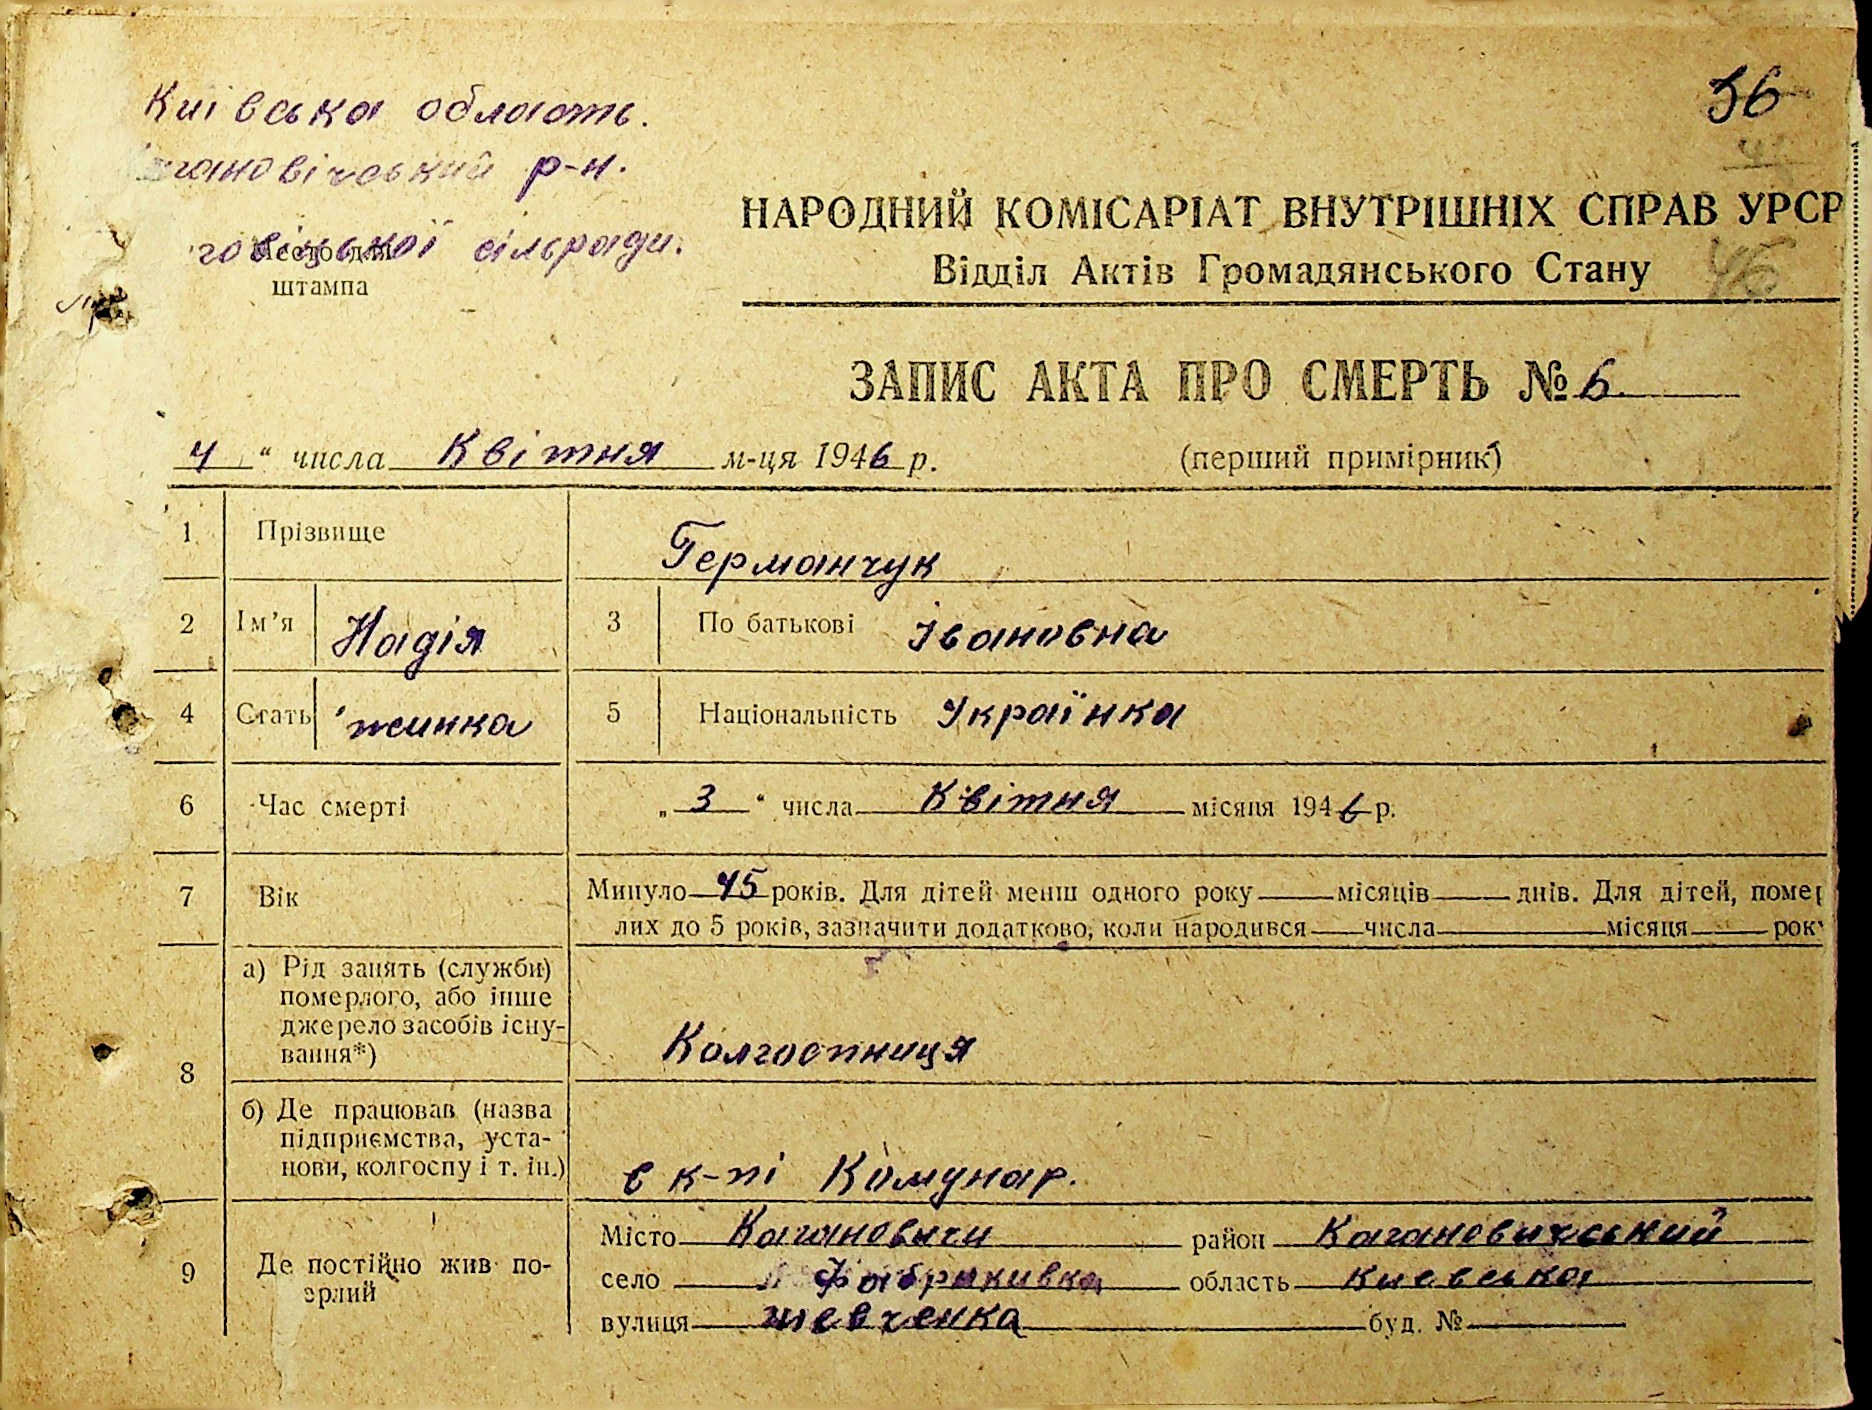 Київська область.
36
гановічський р-н.
НАРОДНИЙ КОМІСАРІАТ ВНУТРІШНІХ СПРАВ УРСР
сільради.
Місто для
штампа
Відділ Актів Громадянського Стану
46
ЗАПИС АКТА ПРО СМЕРТЬ № 6.
4 " числа Квітня м-ця 1946 р. (перший примірник)
1 Прізвище Германчук
2 Ім'я Надія 3 По батькові Івановна
4 Стать жинка 5 Національність Українка
6 Час смерті „ 3 " числа Квітня місяця 1946 р.
7 Вік Минуло 45 років. Для дітей менш одного року місяців днів. Для дітей, помер
лих до 5 років, зазначити додатково, коли народився числа місяця рок
8 а) Рід занять (служби)
померлого, або інше
джерело засобів існу-
вання*) Колгоспниця
б) Де працював (назва
підприємства, уста-
нови, колгоспу і т. ін.) в к-пі Комунар.
9 Де постійно жив по-
ерлий
Місто Кагановичи район Кагановичський
село Фабрикивка область Киевська
вулиця Шевченка буд. №